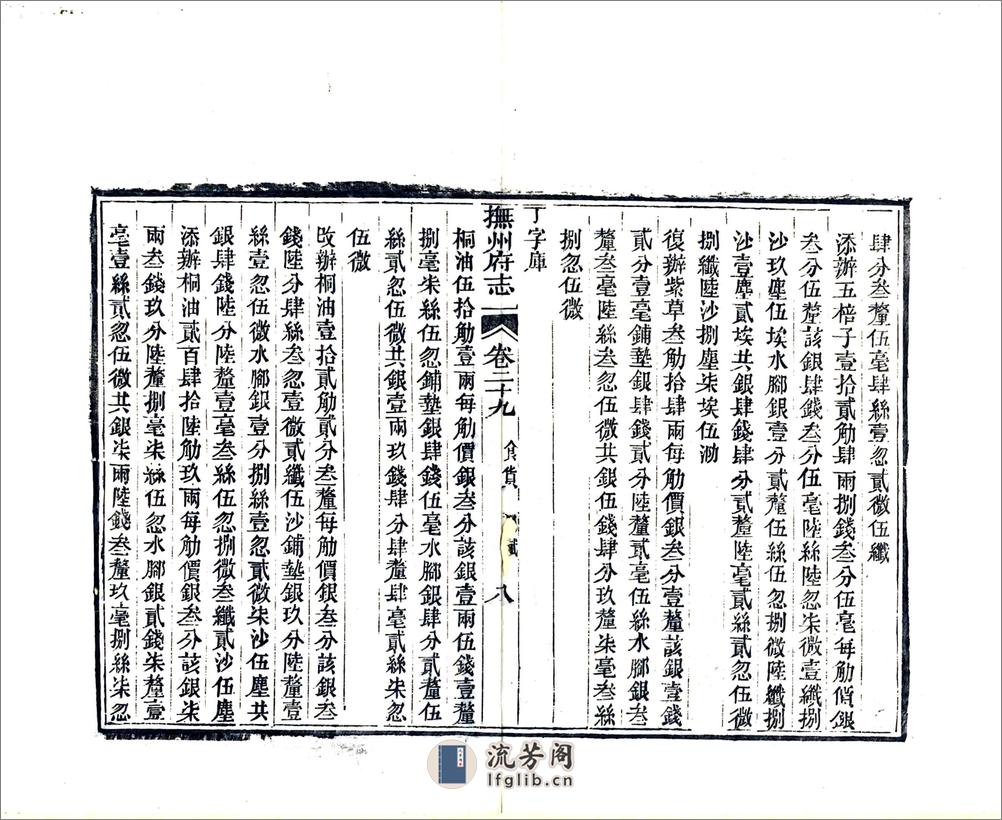 肆分叁釐伍毫肆絲壹忽貳微伍纖
添辦五棓子壹拾貳觔肆兩捌錢叁分伍毫每觔價銀
叁分伍釐該銀肆錢叁分伍毫陸絲陸忽柒微壹纖捌
沙玖塵伍埃水腳銀壹分貳釐伍絲伍忽捌微陸纖捌
沙壹塵貳埃共銀肆錢肆分貳釐陸毫貳絲貳忽伍微
捌纖陸沙捌塵柒埃伍渺
復辦紫草叁觔拾肆兩每觔價銀叁分壹釐該銀壹錢
貳分壹毫鋪墊銀肆錢貳分陸釐貳毫伍絲水腳銀叁
釐叁毫陸絲叁忽伍微共銀伍錢肆分玖釐柒毫叁絲
捌忽伍微
丁字庫
撫州府志
卷二十九
食貨
八
桐油伍拾觔壹兩每觔價銀叁分該銀壹兩伍錢壹釐
捌毫柒絲伍忽鋪墊銀肆錢伍毫水腳銀肆分貳釐伍
絲貳忽伍微共銀壹兩玖錢肆分肆釐肆毫貳絲柒忽
伍微
改辦桐油壹拾貳觔貳分叁釐每觔價銀叁分該銀叁
錢陸分肆絲叁忽壹微貳纖伍沙鋪墊銀玖分陸釐壹
絲壹忽伍微水腳銀壹分捌絲壹忽貳微柒沙伍塵共
銀肆錢陸分陸釐壹毫叁絲伍忽捌微叁纖貳沙伍塵
添辦桐油貳百肆拾陸觔玖兩每觔價銀叁分該銀柒
兩叁錢玖分陸釐捌毫柒絲伍忽水腳銀貳錢柒釐壹
毫壹絲貳忽伍微共銀柒兩陸錢叁釐玖毫捌絲柒忽
流芳阁
lfglib.cn